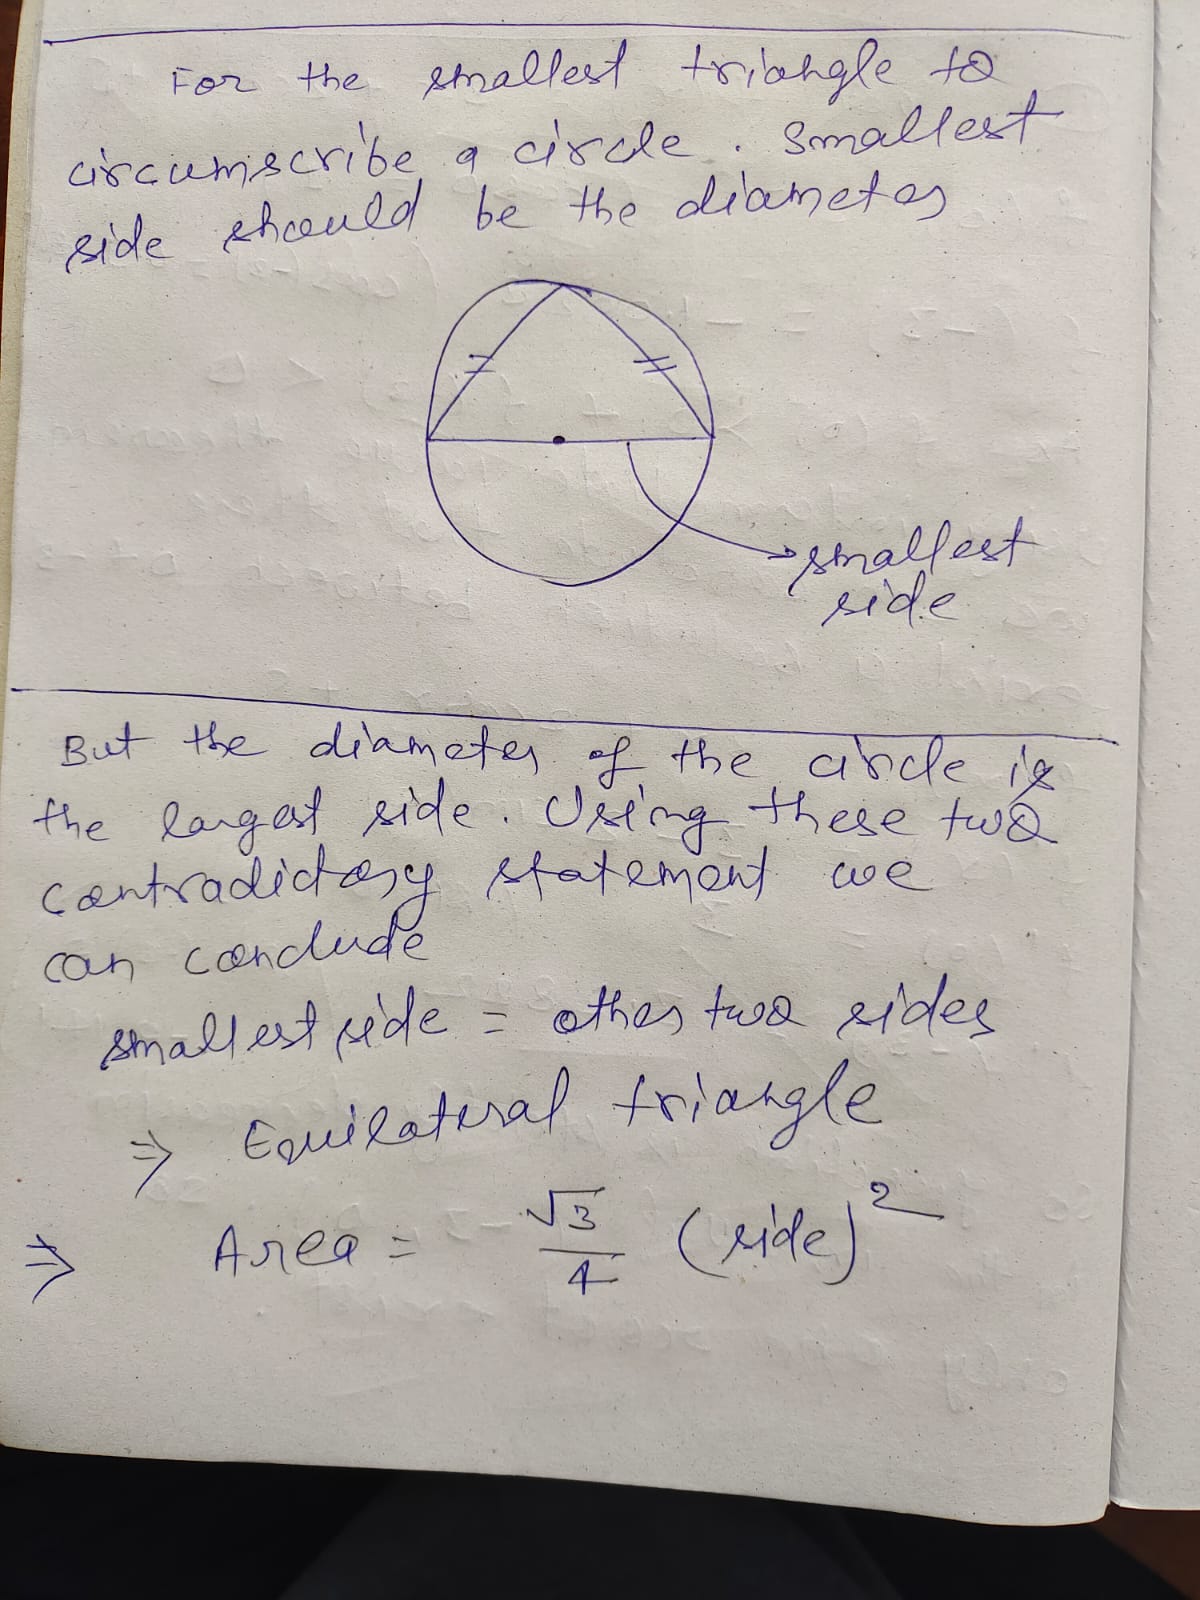 For the smallest triangle to
circumscribe a circle. Smallest
side should be the diameter
smallest
side
But the diameter of the circle is
the largest side. Using these two
contradictory statement we
can conclude
smallest side = other two sides
⇒ Equilateral triangle
⇒ Area = √3/4 (side)²